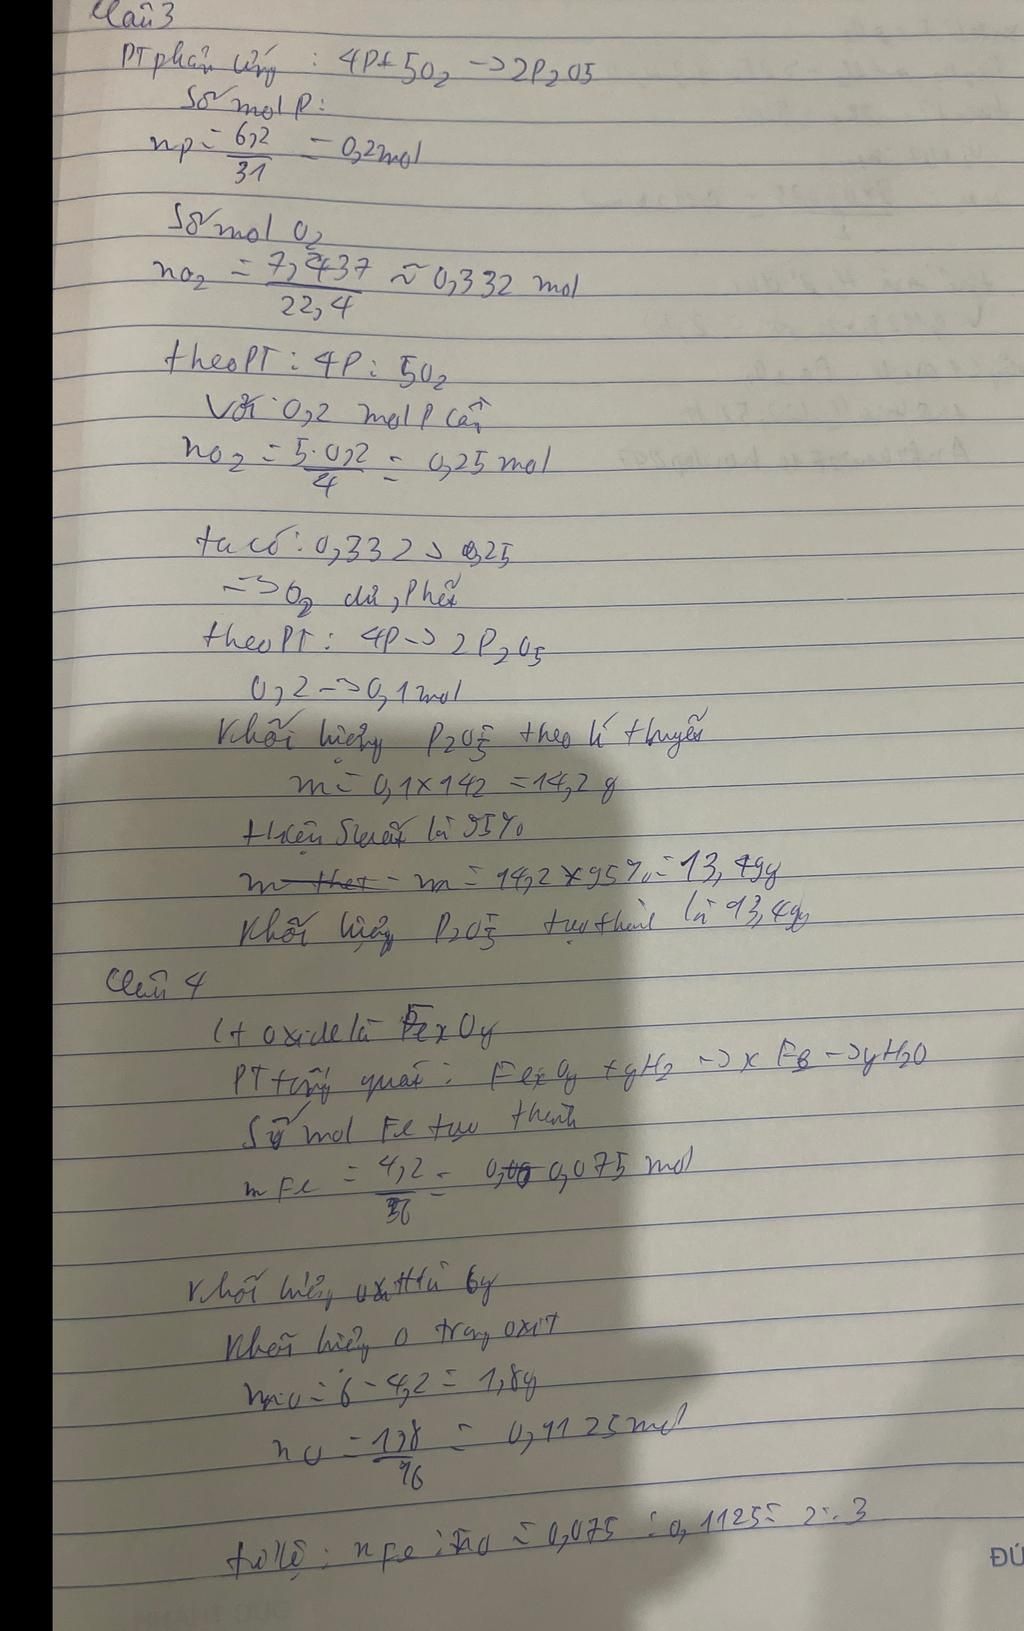 Câu 3
PT phản ứng : 4P + 5O2 -> 2P2O5
Số mol P:
nP = 6,2/31 = 0,2 mol
Số mol O2
nO2 = 7,437/22,4 ≈ 0,332 mol
theo PT : 4P : 5O2
Với 0,2 mol P cần
nO2 = 5.0,2/4 = 0,25 mol
ta có : 0,332 > 0,25
=> O2 dư, P hết
theo PT : 4P -> 2P2O5
0,2 -> 0,1 mol
Khối lượng P2O5 theo lí thuyết
m = 0,1 x 142 = 14,2 g
Hiện Suất là 95%
m = 14,2 x 95% = 13,49g
Khối lượng P2O5 tạo thành là 13,49g
Câu 4
oxide là FexOy
PT tổng quát : FexOy + yH2 -> x Fe -> yH2O
Số mol Fe tạo thành
mFe = 4,2/56 = 0,075 mol
Khối lượng 6g
Khối lượng O trong oxit
mO = 6 - 4,2 = 1,8g
nO = 1,8/16 = 0,1125 mol
tỉ lệ : nFe : nO = 0,075 : 0,1125 = 2 : 3
ĐỨ